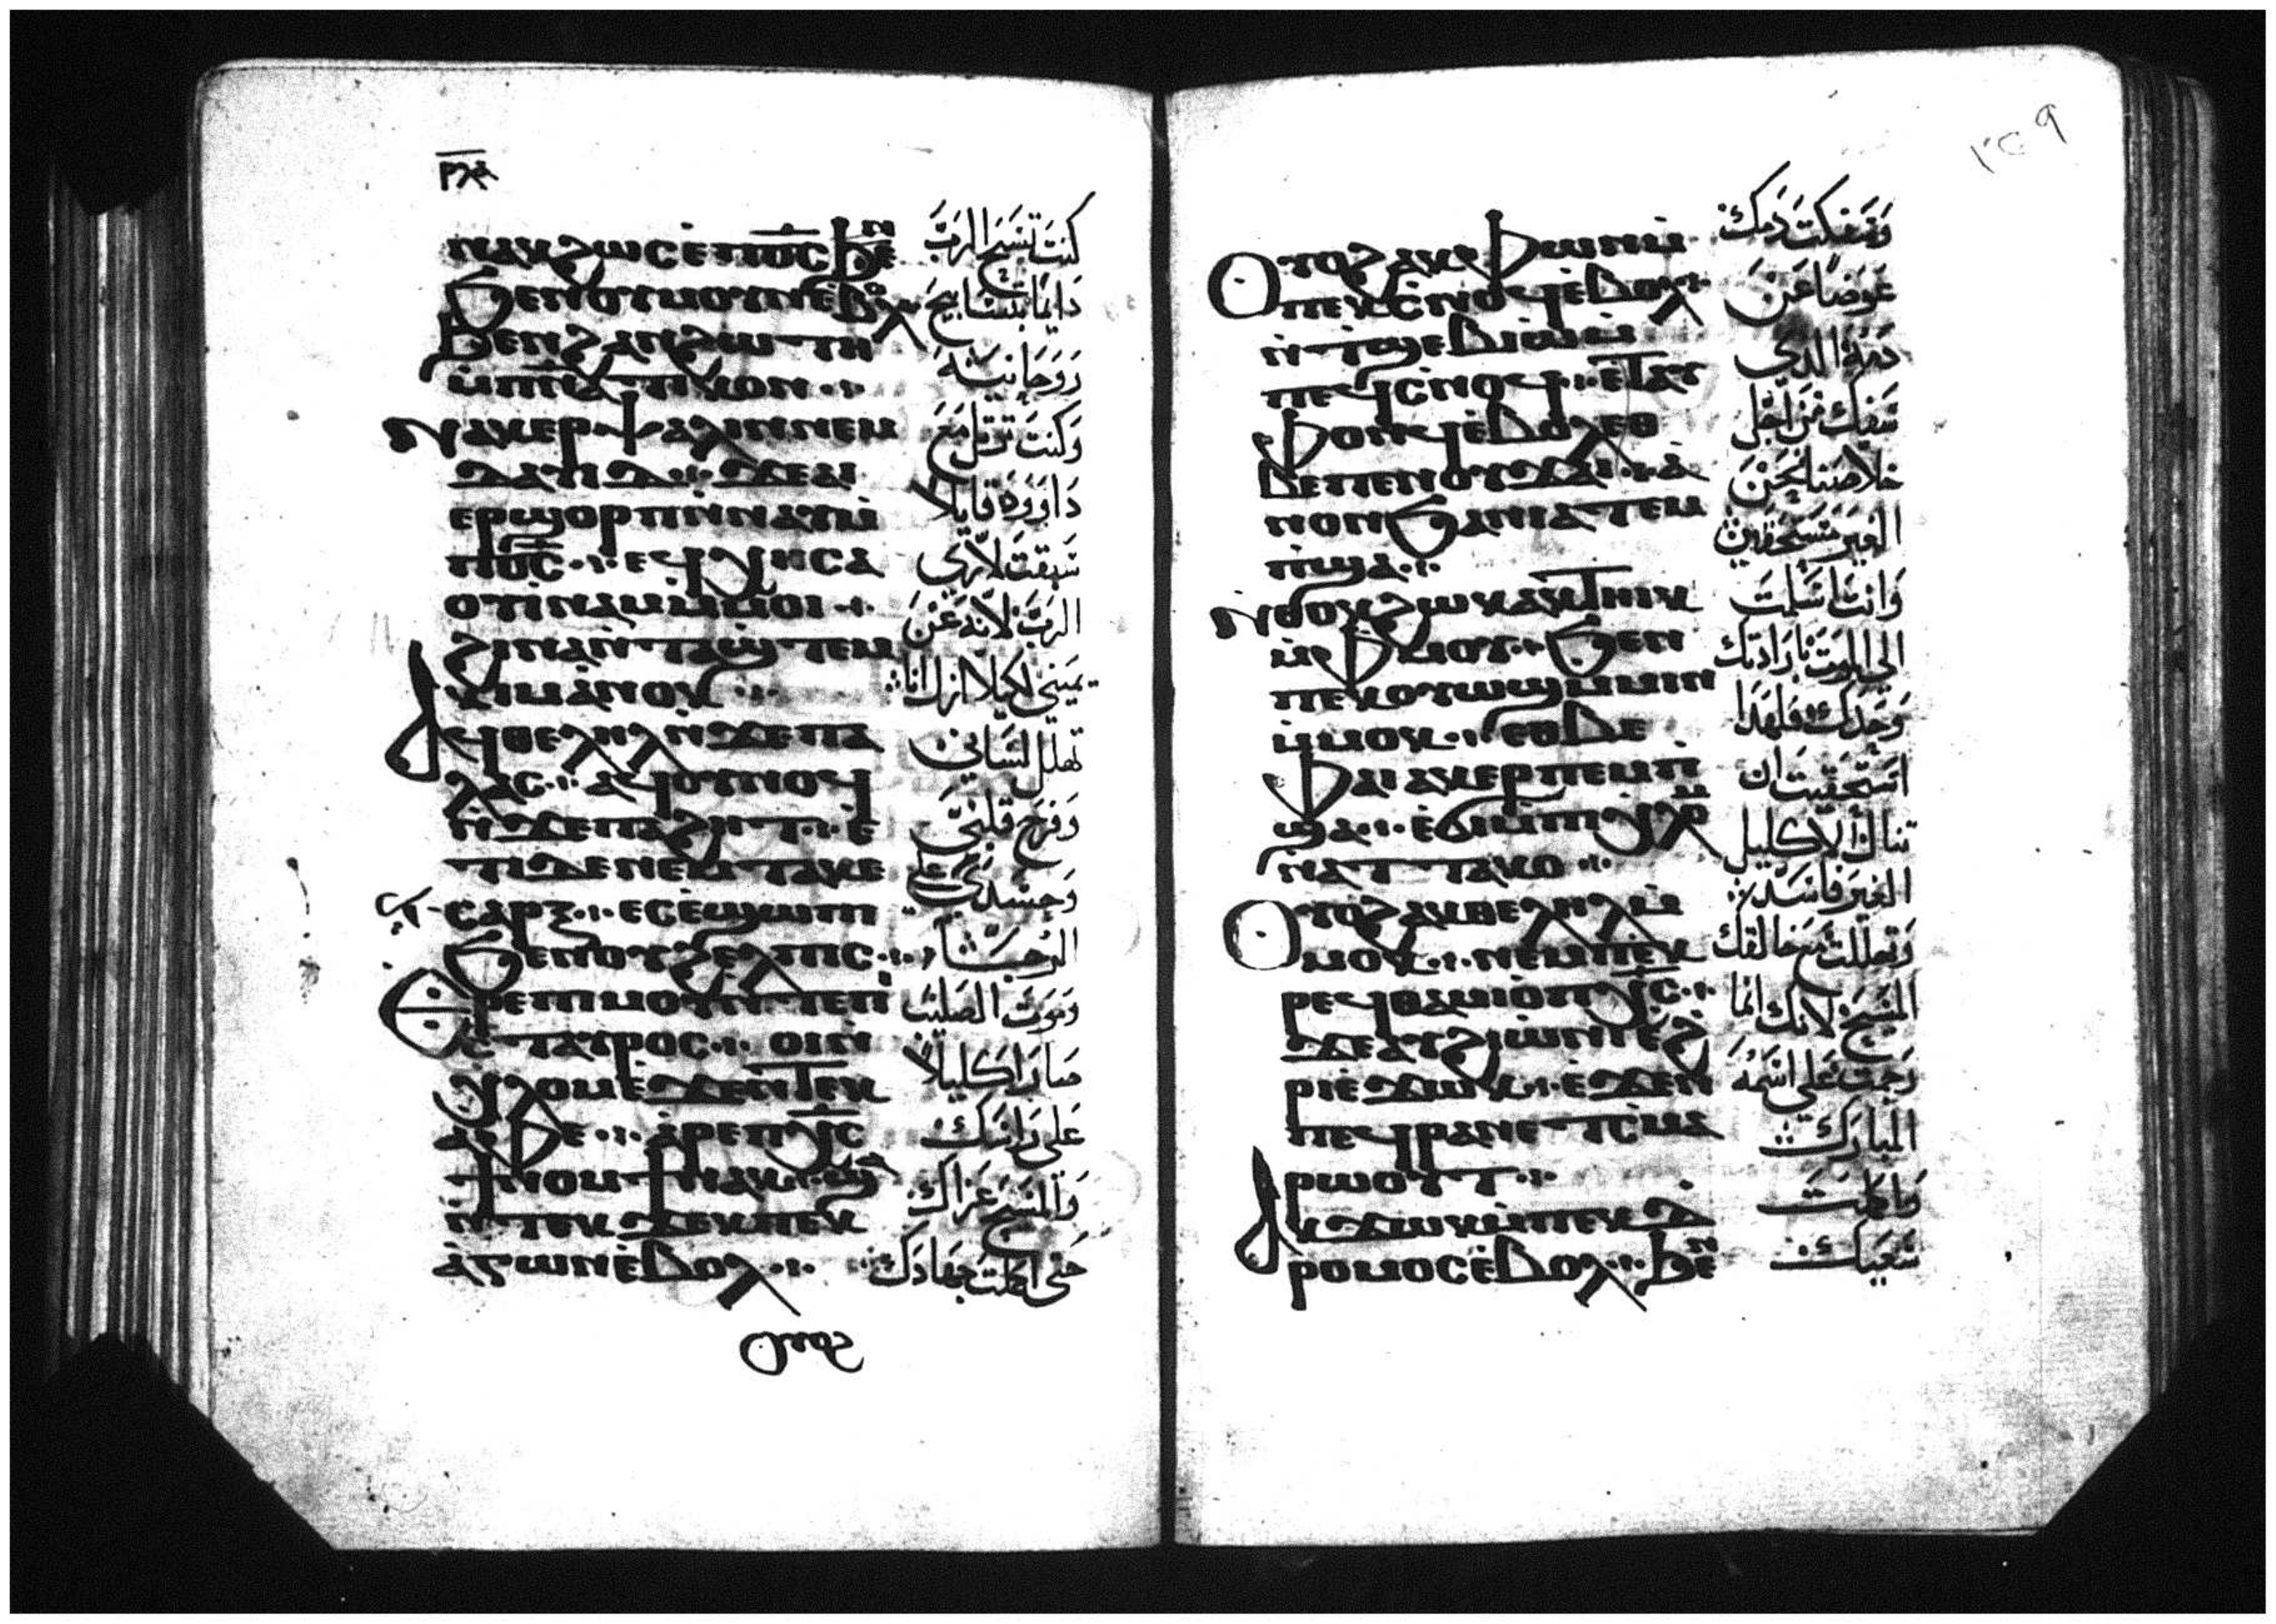 ⲣⲗⲁ
ⲛⲁⲕϩⲱⲥ ⲉⲡϭⲟⲓⲥ ϧⲉⲛ
ϭⲉⲛⲟⲩⲙⲟⲩⲛ ⲉⲃⲟⲗ
ϧⲉⲛϩⲁⲛϩⲱⲧⲏ
ⲙⲡⲛⲁⲧⲓⲕⲟⲛ
ⲛⲁⲕⲉⲣⲯⲁⲗⲓⲛ ⲛⲉⲙ
ⲇⲁⲩⲓⲇ ϫⲉ ⲁⲓ
ⲉⲣϣⲟⲣⲡ ⲛⲛⲁⲩ ⲙ
ⲡϭⲟⲓⲥ ⲉϥⲭⲏ ⲥⲁ
ⲟⲩⲓⲛⲁⲙ ⲙⲙⲟⲓ
ϩⲓⲛⲁ ⲛⲧⲁϣⲧⲉⲙ
ⲕⲓⲙ ⲁⲛⲟⲕ
ⲁϥⲑⲉⲗⲏⲗ ⲛϫⲉⲡⲁ
ⲗⲁⲥ ⲁϥⲟⲩⲛⲟϥ
ⲛϫⲉⲡⲁϩⲏⲧ ⲉ
ⲧⲓ ⲇⲉ ⲛⲉⲙ ⲧⲁⲕⲉ
ⲥⲁⲣⲝ ⲉⲥⲉϣⲱⲡⲓ
ϭⲉⲛⲟⲩϩⲉⲗⲡⲓⲥ
ⲉⲣⲉⲡⲓⲙⲟⲩ ⲛⲧⲉⲡⲓ
ⲥⲧⲁⲩⲣⲟⲥ ⲟⲓ ⲛ
ⲭⲗⲟⲙ ⲉϫⲉⲛ ⲧⲉⲕ
ⲁⲫⲉ ⲁⲣⲉⲡⲭⲥ
ϯⲛⲟⲙϯ ⲛⲁⲕ ϣⲁ
ⲛⲧⲉⲕϫⲉⲕ ⲡⲉⲕ
ⲁⲅⲱⲛ ⲉⲃⲟⲗ
ⲟⲩⲟϩ
كنت تسبح الرب
دايما بتسابيح
روحانيه
وكنت ترتل مع
داوود قايلا
سبقت لاري
الرب لانه عن
يميني لكيلا ازل انا
تهلل لساني
وفرح قلبي
وجسدي علي
الرجا
وموت الصليب
صار اكليلا
علي راسك
والمسيح عزاك
حتي اكملت جهادك
ⲟⲩⲟϩ ⲁⲕⲫⲱⲛ ⲙ
ⲡⲉⲕⲥⲛⲟϥ ⲉⲃⲟⲗ
ⲛⲧϣⲉⲃⲓⲱ ⲙ
ⲡⲉϥⲥⲛⲟϥ ⲉⲧⲁϥ
ⲫⲟⲛϥ ⲉⲃⲟⲗ ⲉⲑ
ⲃⲉ ⲡⲉⲛⲟⲩϫⲁⲓ ⲁ
ⲛⲟⲛ ϭⲁ ⲛⲓⲁⲧⲉⲙ
ⲡϣⲁ
ⲛⲑⲟⲕ ϩⲱⲕ ⲁⲕⲧⲏⲓⲕ
ⲙⲫⲙⲟⲩ ϭⲉⲛ
ⲡⲉⲕⲟⲩⲱϣ ⲙⲙⲓⲛ
ⲙⲙⲟⲕ ⲉⲑⲃⲉ
ⲫⲁⲓ ⲁⲕⲉⲣⲡⲉⲙⲡ
ϣⲁ ⲉϭⲓ ⲙⲡⲓⲭⲗⲟⲙ
ⲛⲁⲧⲧⲁⲕⲟ
ⲟⲩⲟϩ ⲁⲕⲑⲉⲗⲏⲗ ⲙ
ⲙⲟⲕ ⲛⲉⲙ ⲡⲉⲕ
ⲣⲉϥⲑⲁⲙⲓⲟ ⲡⲭⲥ
ϫⲉ ⲁⲩϩⲓⲱⲛⲓ ⲉϩ
ⲣⲏⲓ ⲉϫⲱⲕ ⲉϫⲉⲛ
ⲡⲉϥⲣⲁⲛ ⲉⲧⲥⲙⲁ
ⲣⲱⲟⲩⲧ
ⲁⲕϫⲱⲕ ⲙⲡⲉⲕⲇ
ⲣⲟⲙⲟⲥ ⲉⲃⲟⲗ ϧⲉⲛ
وسفكت دمك
عوضا عن
دمه الدي
سفك من اجل
خلاصنا نحن
الغير مستحقين
وانت اسلمت
الي الموت بارادتك
وحدك فلهدا
استحقيت ان
تنال الاكليل
الغير فاسد
وتهللت مع خالقك
المسيح لانك انما
رجمت علي اسمه
المبارك
واكملت
سعيك